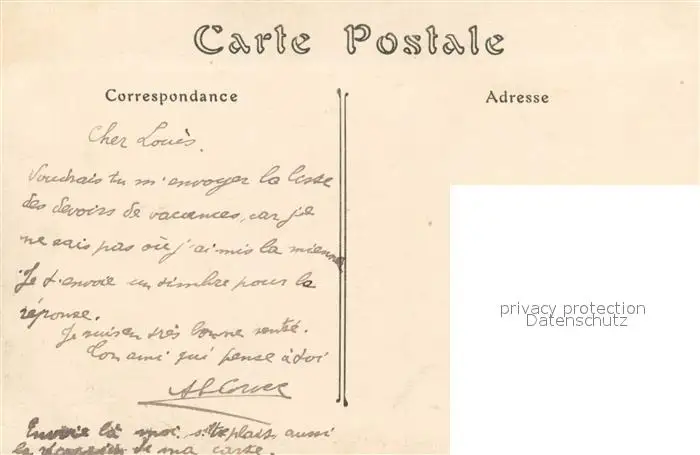 Carte Postale
Correspondance
Adresse
Cher Louis.
Voudrais tu m'envoyer la liste
des devoirs de vacances, car je
ne sais pas où j'ai mis la mienne
Je t'envoie un timbre pour la
réponse.
Je suis en très bonne santé.
Ton ami qui pense à toi
Envoie là moi s.te plait aussi
le de ma carte.
privacy protection
Datenschutz